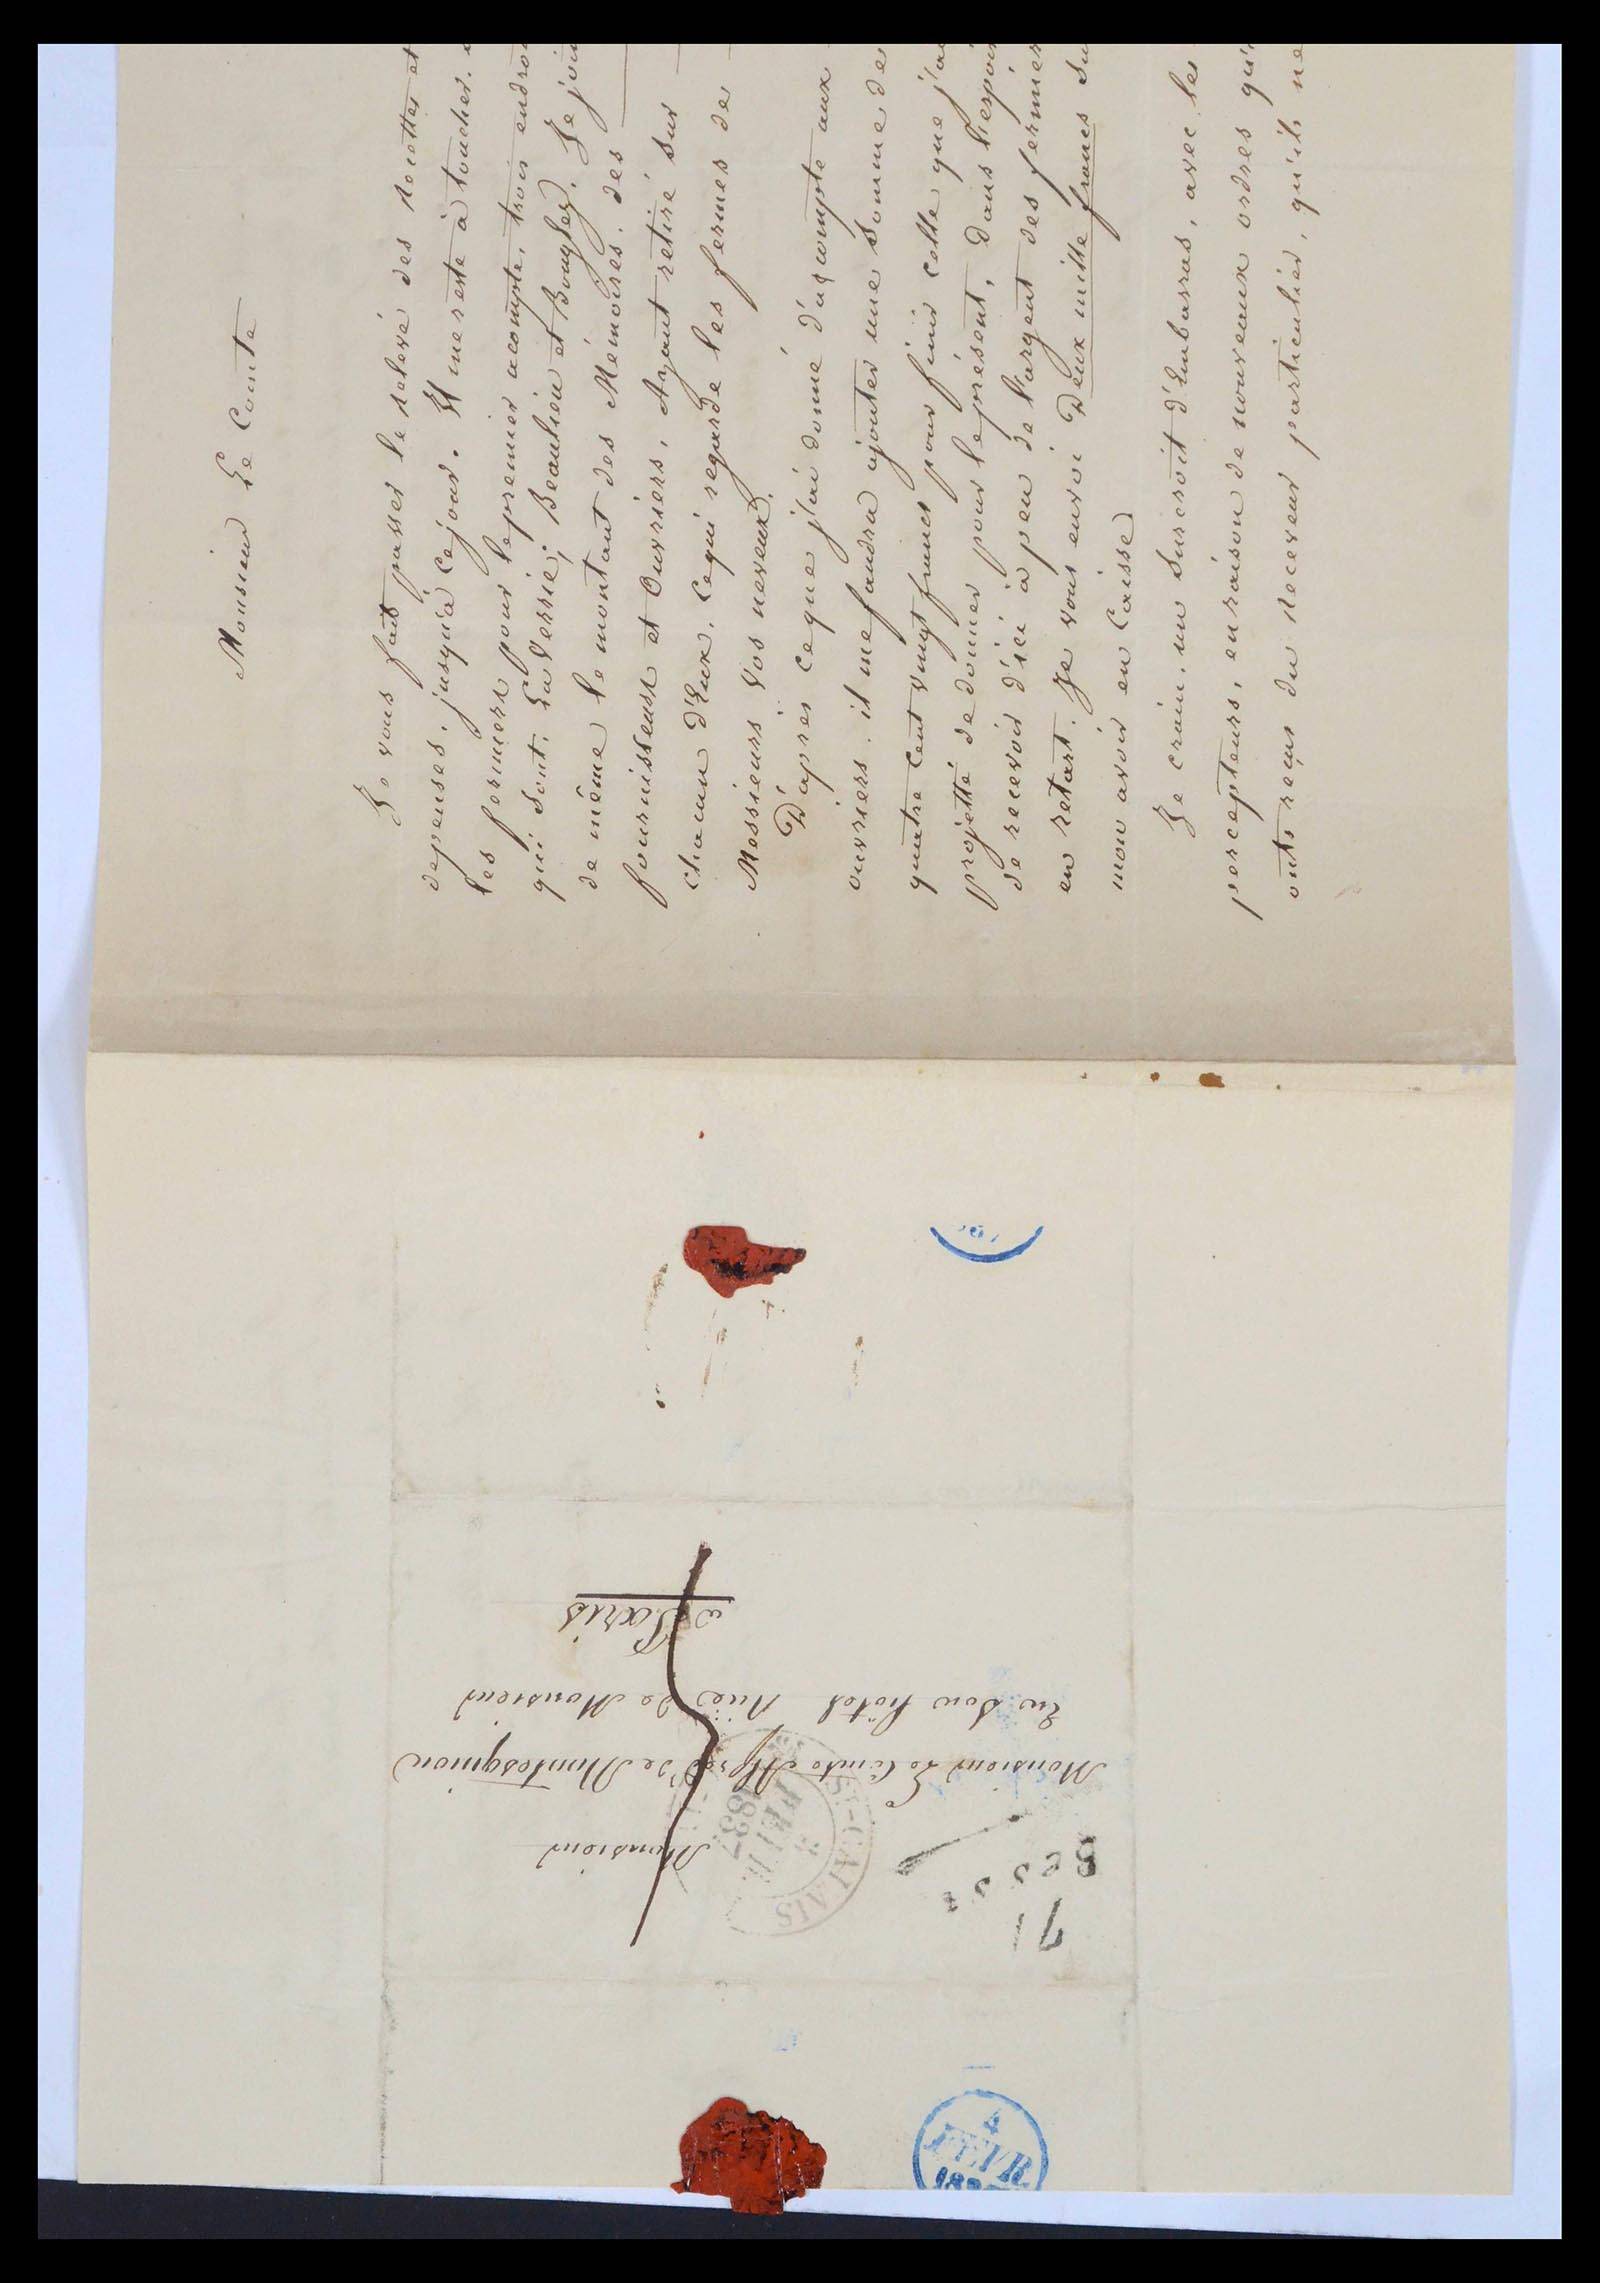 Monsieur Le Comte
Je vous fait passer le relevé des recettes et
depenses, jusqu'à ce jour. Il me reste à toucher
les fermiers pour le premier acompte, trois endroi
qui sont, La Verrie, Beaulieu et Bougler. Je join
de même le montant des Mémoires, des
fournisseurs et Ouvriers, Ayant retiré sur
chacun d'Eux, ce qui regarde les fermes de
Messieurs vos neveux.
D'après ce que j'ai donné d'acompte aux
ouvriers, il me faudra ajouter une somme de
quatre cent vingt francs pour finir celle que j'a
projetté de donner pour le présent, Dans l'espoir
de recevoir d'ici à peu de l'argent des fermiers
en retart. Je vous envoi Deux mille francs su
mon avoir en Caisse
Je crain, un surcroit d'Embarras, avec les
percepteurs, en raison de nouveaux ordres qu'i
onts reçus du receveur particulier, qu'ils ne
Monsieur
Monsieur Le Comte Alfred de Montesquiou
En Son hôtel Rue de Monsieur
à Paris
ST-CALAIS
3
FEVR.
1837
71
4
FEVR.
183